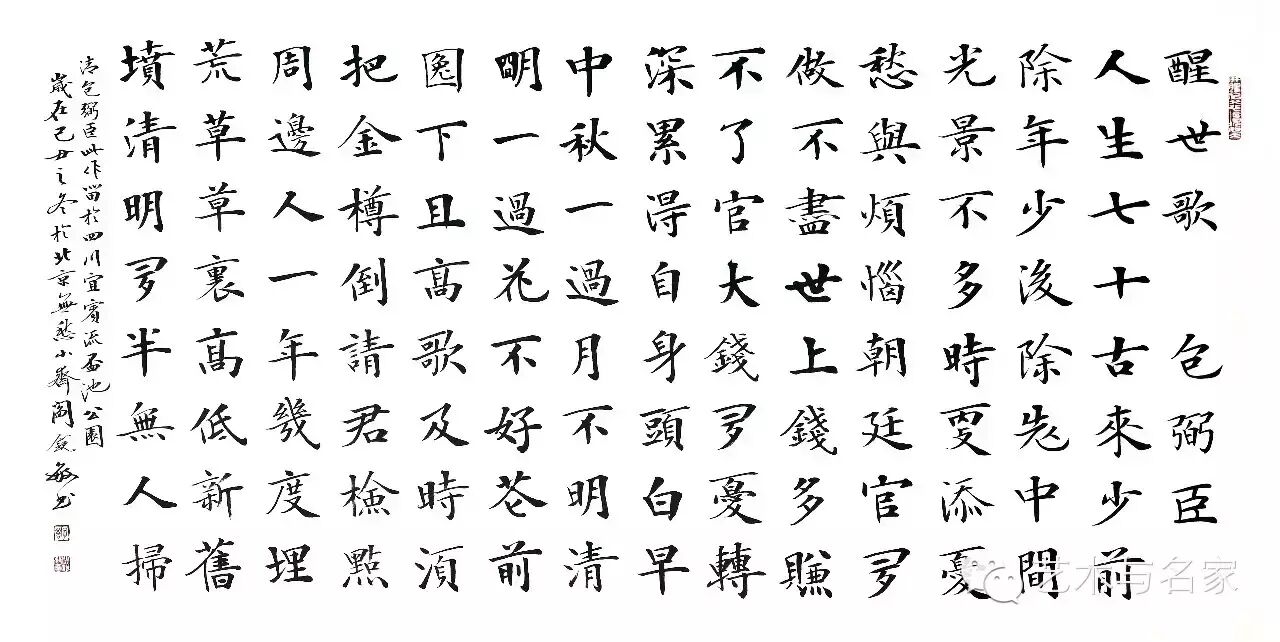 醒世歌 包弼臣
人生七十古來少前
除年少後除老中間
光景不多時更添憂
愁與煩惱朝廷官多
做不盡世上錢多賺
不了官大錢多憂轉
深累得自身頭白早
中秋一過月不明清
明一過花不好花前
月下且高歌及時須
把金樽倒請君檢點
周邊人一年幾度埋
荒草草裏高低新舊
墳清明多半無人掃
清包弼臣此作留於四川宜賓流盃池公園
歲在己丑之冬於北京無愁小齋閻銳敏书
艺术与名家